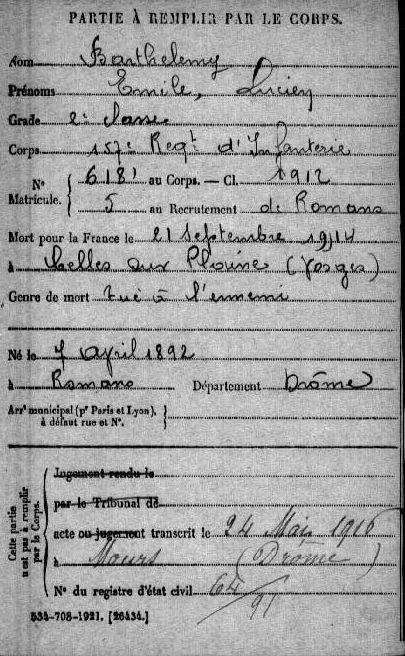 PARTIE À REMPLIR PAR LE CORPS.
Nom Barthelemy
Prénoms Emile, Lucien
Grade 2e classe
Corps 157e Regt d'Infanterie
N° Matricule. { 6181 au Corps. — Cl. 1912
5 au Recrutement de Romans
Mort pour la France le 21 Septembre 1914
à Celles sur Plaine (Vosges)
Genre de mort tué à l'ennemi
Né le 7 Avril 1892
à Romans Département Drôme
Arrt municipal (pr Paris et Lyon), à défaut rue et N°. }
Cette partie n'est pas à remplir par le Corps.
Jugement rendu le
par le Tribunal de
acte ou jugement transcrit le 24 Mai 1916
à Mours (Drôme)
N° du registre d'état civil 64/91
534-708-1921. [26434.]